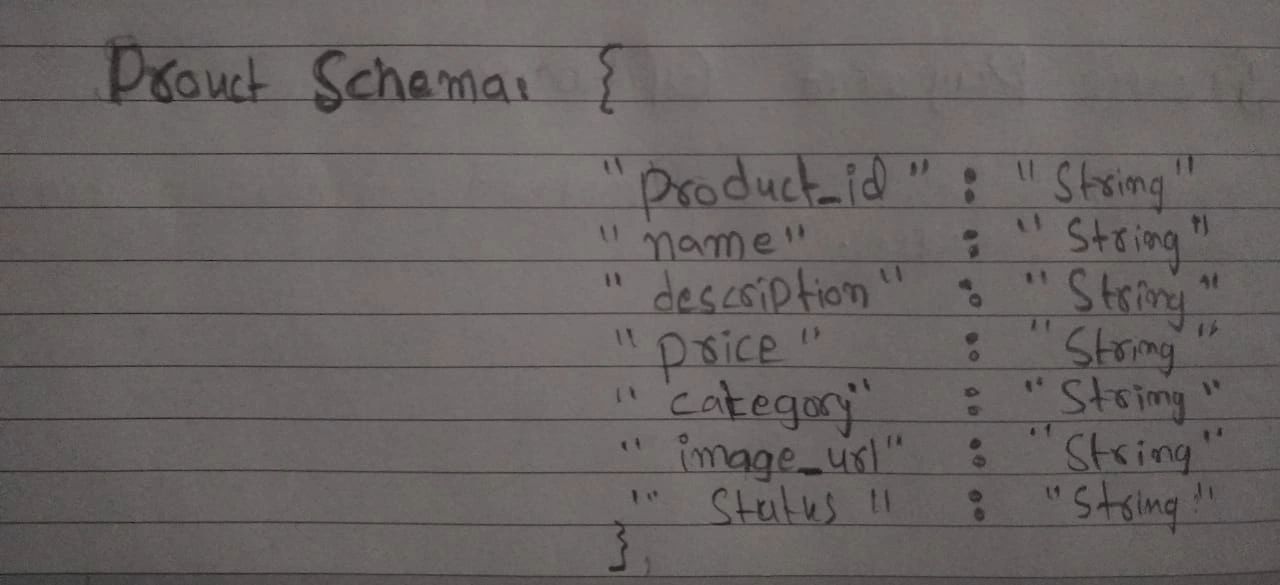 Prouct Schema: {
"product_id" : "String"
"name" : "String"
"description" : "String"
"price" : "String"
"category" : "String"
"image_url" : "String"
"Status" : "String"
},